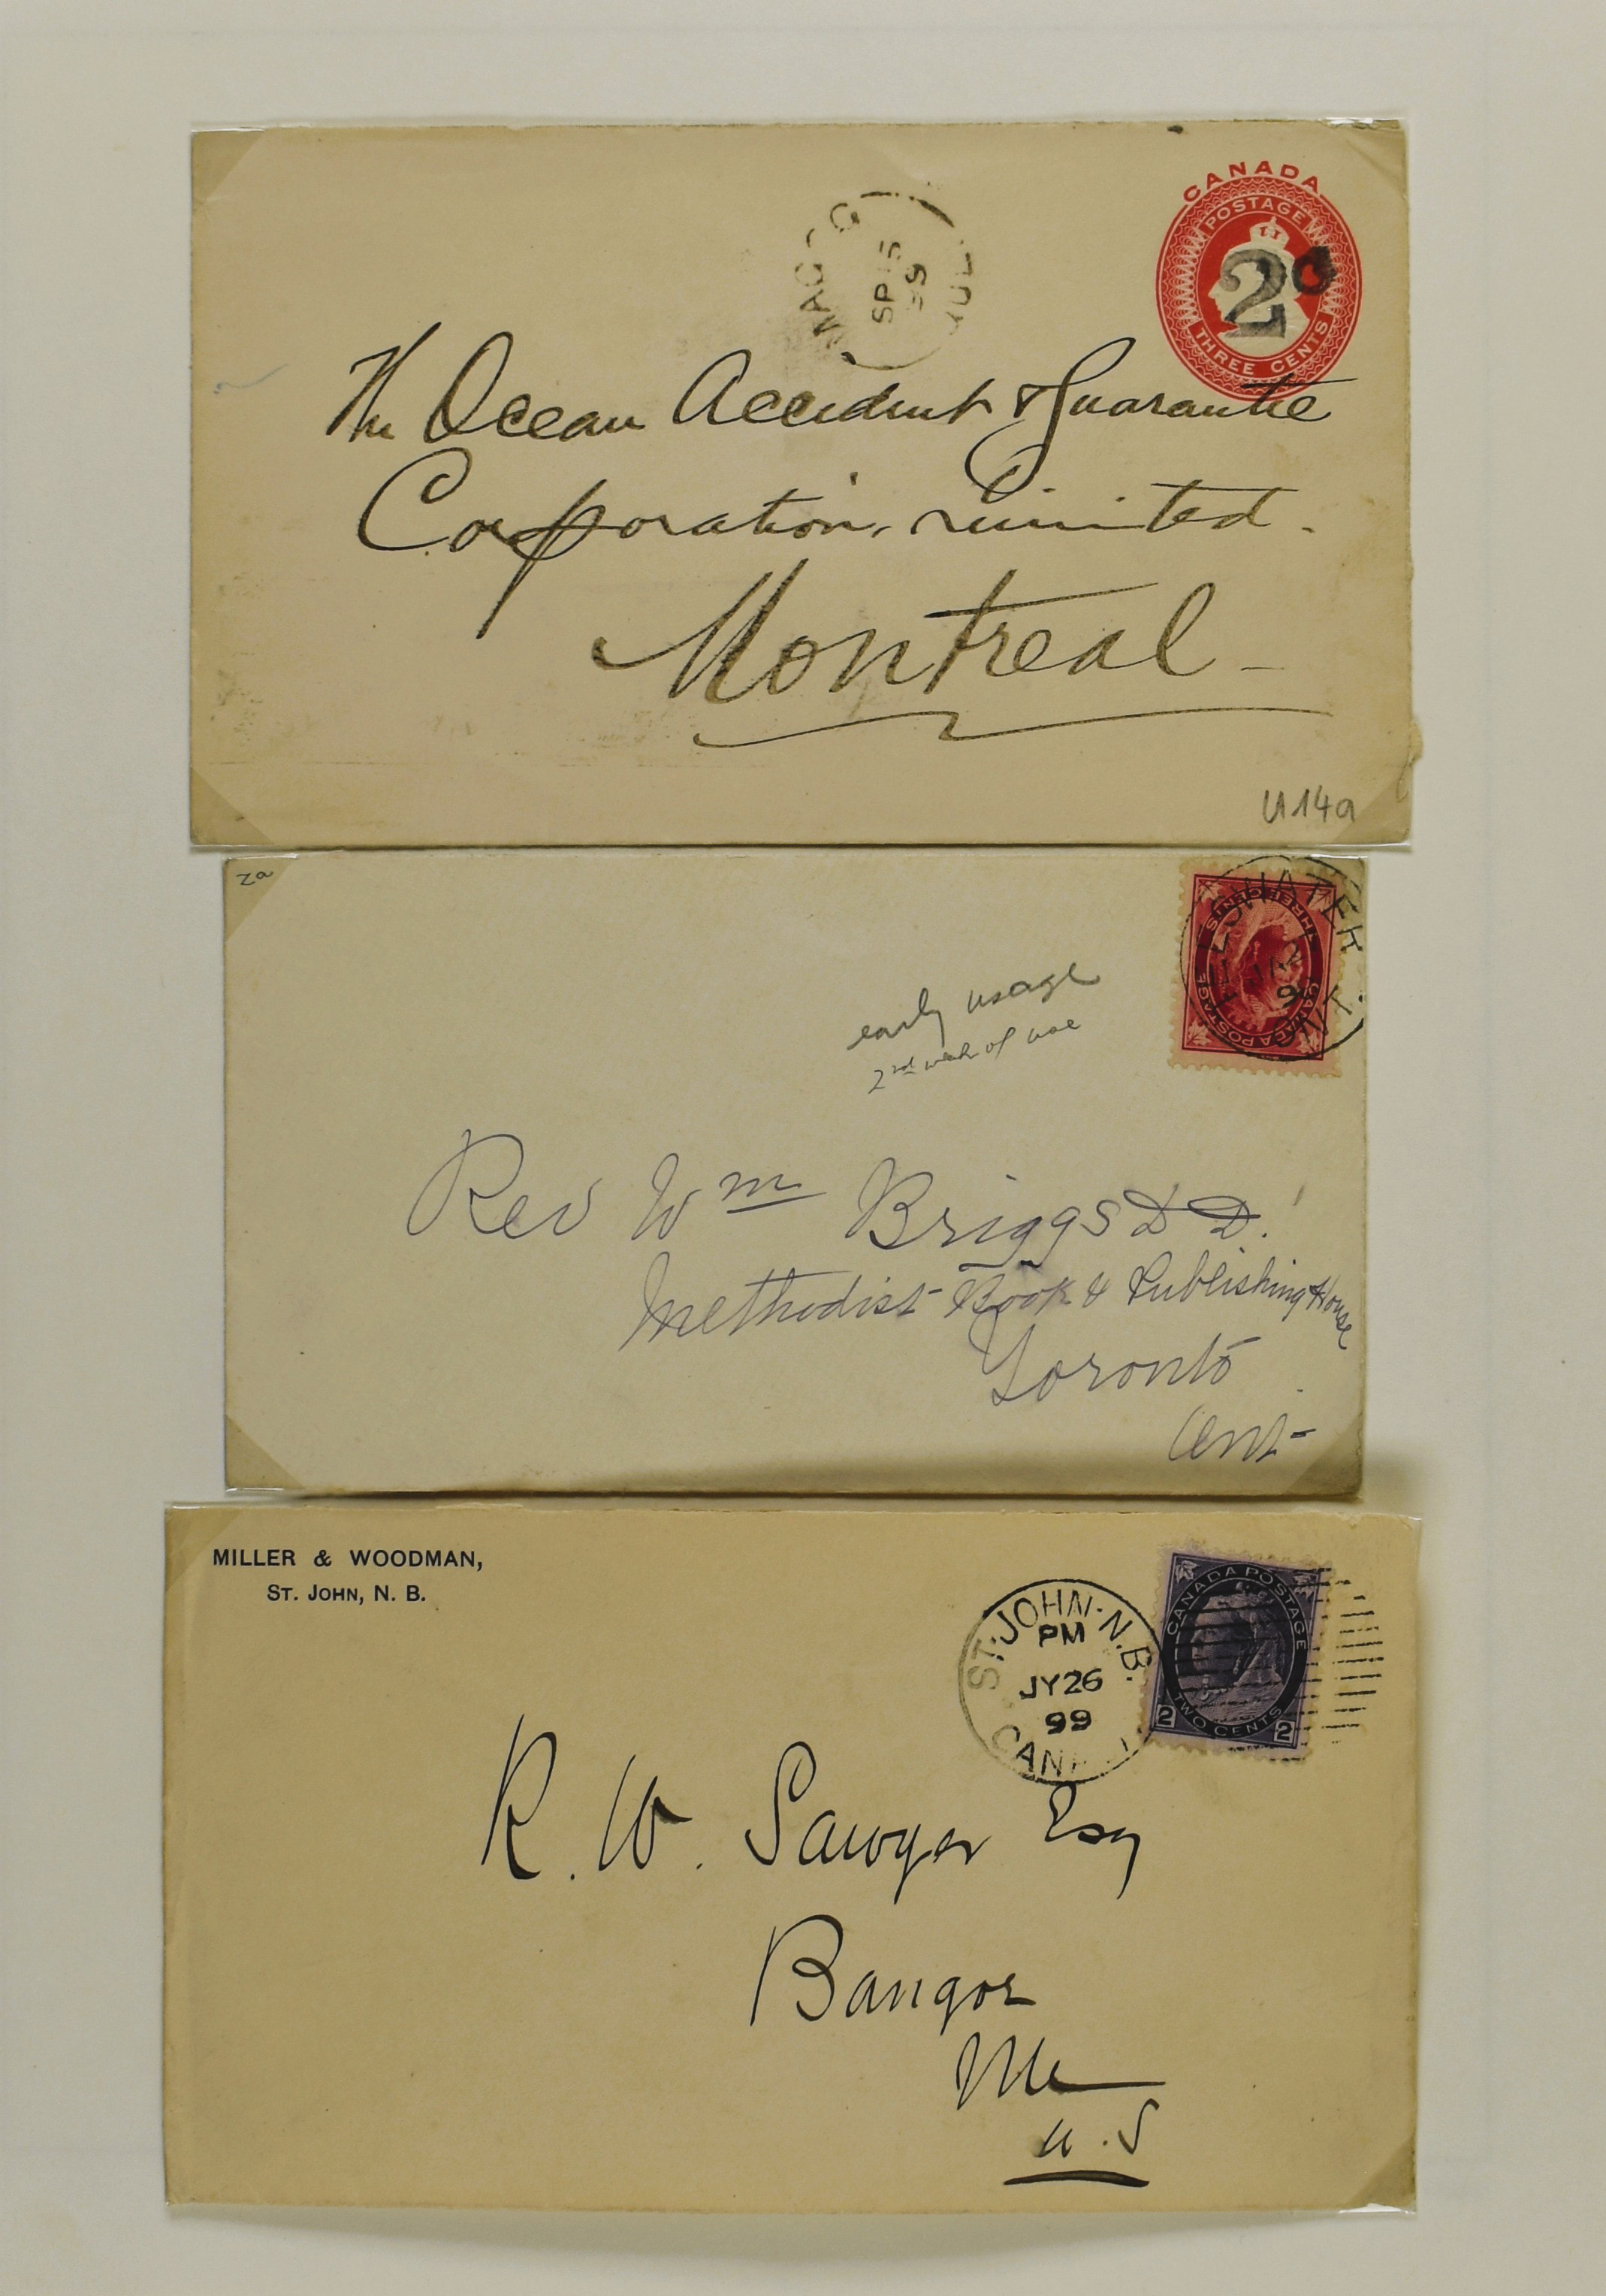 CANADA
POSTAGE
2c
THREE CENTS
SP 15
99
The Ocean Accident & Guarantee
Corporation, Limited.
Montreal -
U14a
za
THREE CENTS
CANADA POSTAGE
early usage
2nd week of use
Rev Wm Briggs D D.
Methodist Book & Publishing House
Toronto
Ont-
MILLER & WOODMAN,
ST. JOHN, N. B.
ST. JOHN. N.B.
PM
JY 26
99
CANADA POSTAGE
TWO CENTS
2 2
R. W. Sawyer Esq
Bangor
Me
U.S